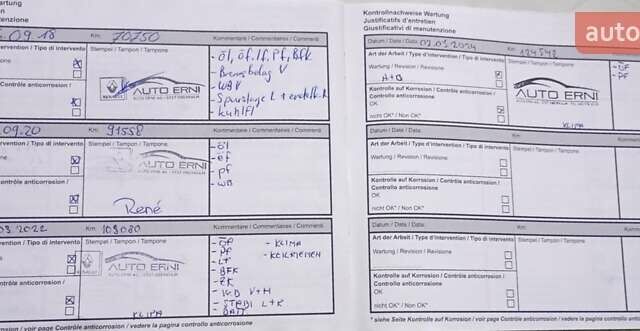 .09.18 Km: 70750 Kommentare / Commentaires / Commenti
tervention / Tipo di intervento Stempel / Timpon / Tampone
- öl, öf. lf, Pf, Bfk
- Bremsbelag V
- WBV
AUTO ERNI
contrôle anticorrosion /
- Kühlfl
.09.20 Km: 91558 Kommentare / Commentaires / Commenti
tervention / Tipo di intervento Stempel / Timpon / Tampone
- öl
- öf
- pf
- WB
AUTO ERNI
ontrôle anticorrosion /
René
03 2022 Km: 109080 Kommentare / Commentaires / Commenti
tervention / Tipo di intervento Stempel / Timpon / Tampone
- ÖF - KLIMA
- PF - KEILRIEMEN
- LF
- BFK
AUTO ERNI
RENAULT
ontrôle anticorrosion /
- WB V+H
- STABI L+R
- BATT
KLIMA
n / voir page Contrôle anticorrosion / vedere la pagina controllo anticorrosione
Kontrollnachweise Wartung
Justificatifs d'entretien
Giustificativi di manutenzione
auto
Datum / Date / Data: 02.05.2024 Km: 124542
Art der Arbeit / Type d'intervention / Tipo di intervento
Wartung / Revision / Revisione
A+B
- ÖF
- PF
AUTO ERNI
Kontrolle auf Korrosion / Contrôle anticorrosion /
Controllo anticorrosione
OK
nicht OK* / Non OK*
KLIMA
Datum / Date / Data: Km:
Art der Arbeit / Type d'intervention / Tipo di intervento Stempel / Timpon / Tampone
Wartung / Revision / Revisione
Kontrolle auf Korrosion / Contrôle anticorrosion /
Controllo anticorrosione
OK
nicht OK* / Non OK*
Datum / Date / Data: Km:
Art der Arbeit / Type d'intervention / Tipo di intervento Stempel / Timpon / Tampone
Wartung / Revision / Revisione
Kontrolle auf Korrosion / Contrôle anticorrosion /
Controllo anticorrosione
OK
nicht OK* / Non OK*
* siehe Seite Kontrolle auf Korrosion / voir page Contrôle anticorrosion / vedere la pagina controllo anticorrosione